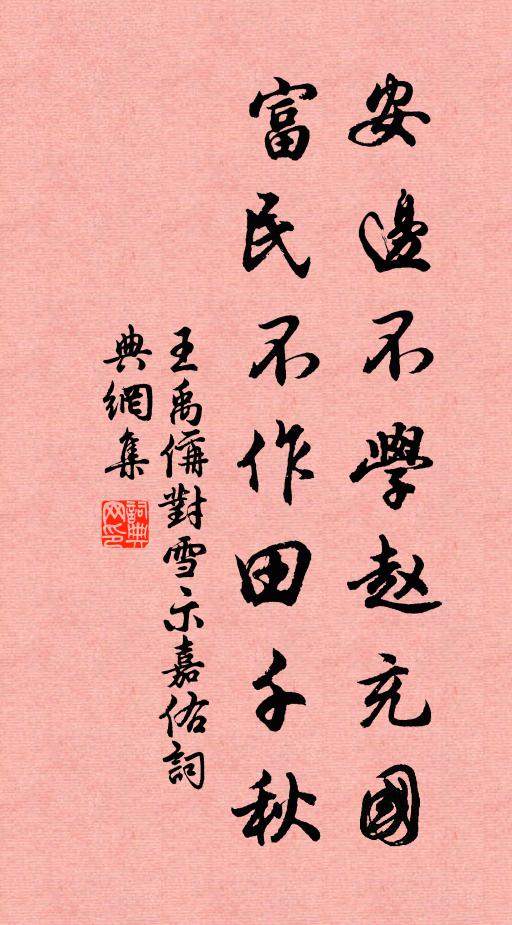 安邊不學赵充國
富民不作田千秋
王禹偁對雪示嘉佑詞
典網集
詞典网印